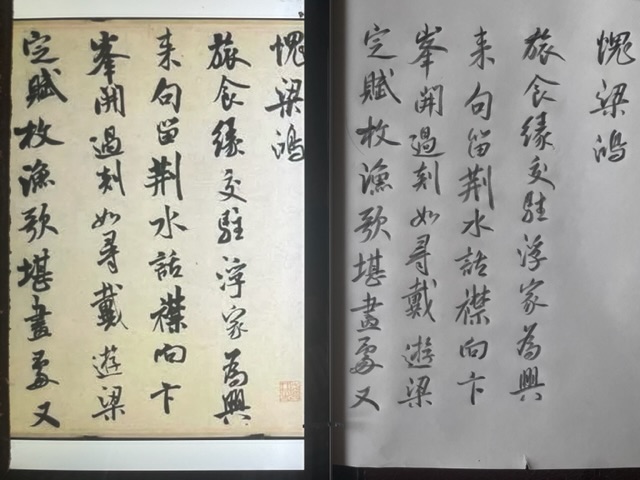 愧梁鴻
旅食緣交駐浮家為興
来句留荆水話襟向卞
峯開過剡如尋戴遊梁
定賦枚漁歌堪畫處又
愧梁鴻
旅食緣交駐浮家為興
来句留荆水話襟向卞
峯開過剡如尋戴遊梁
定賦枚漁歌堪畫處又